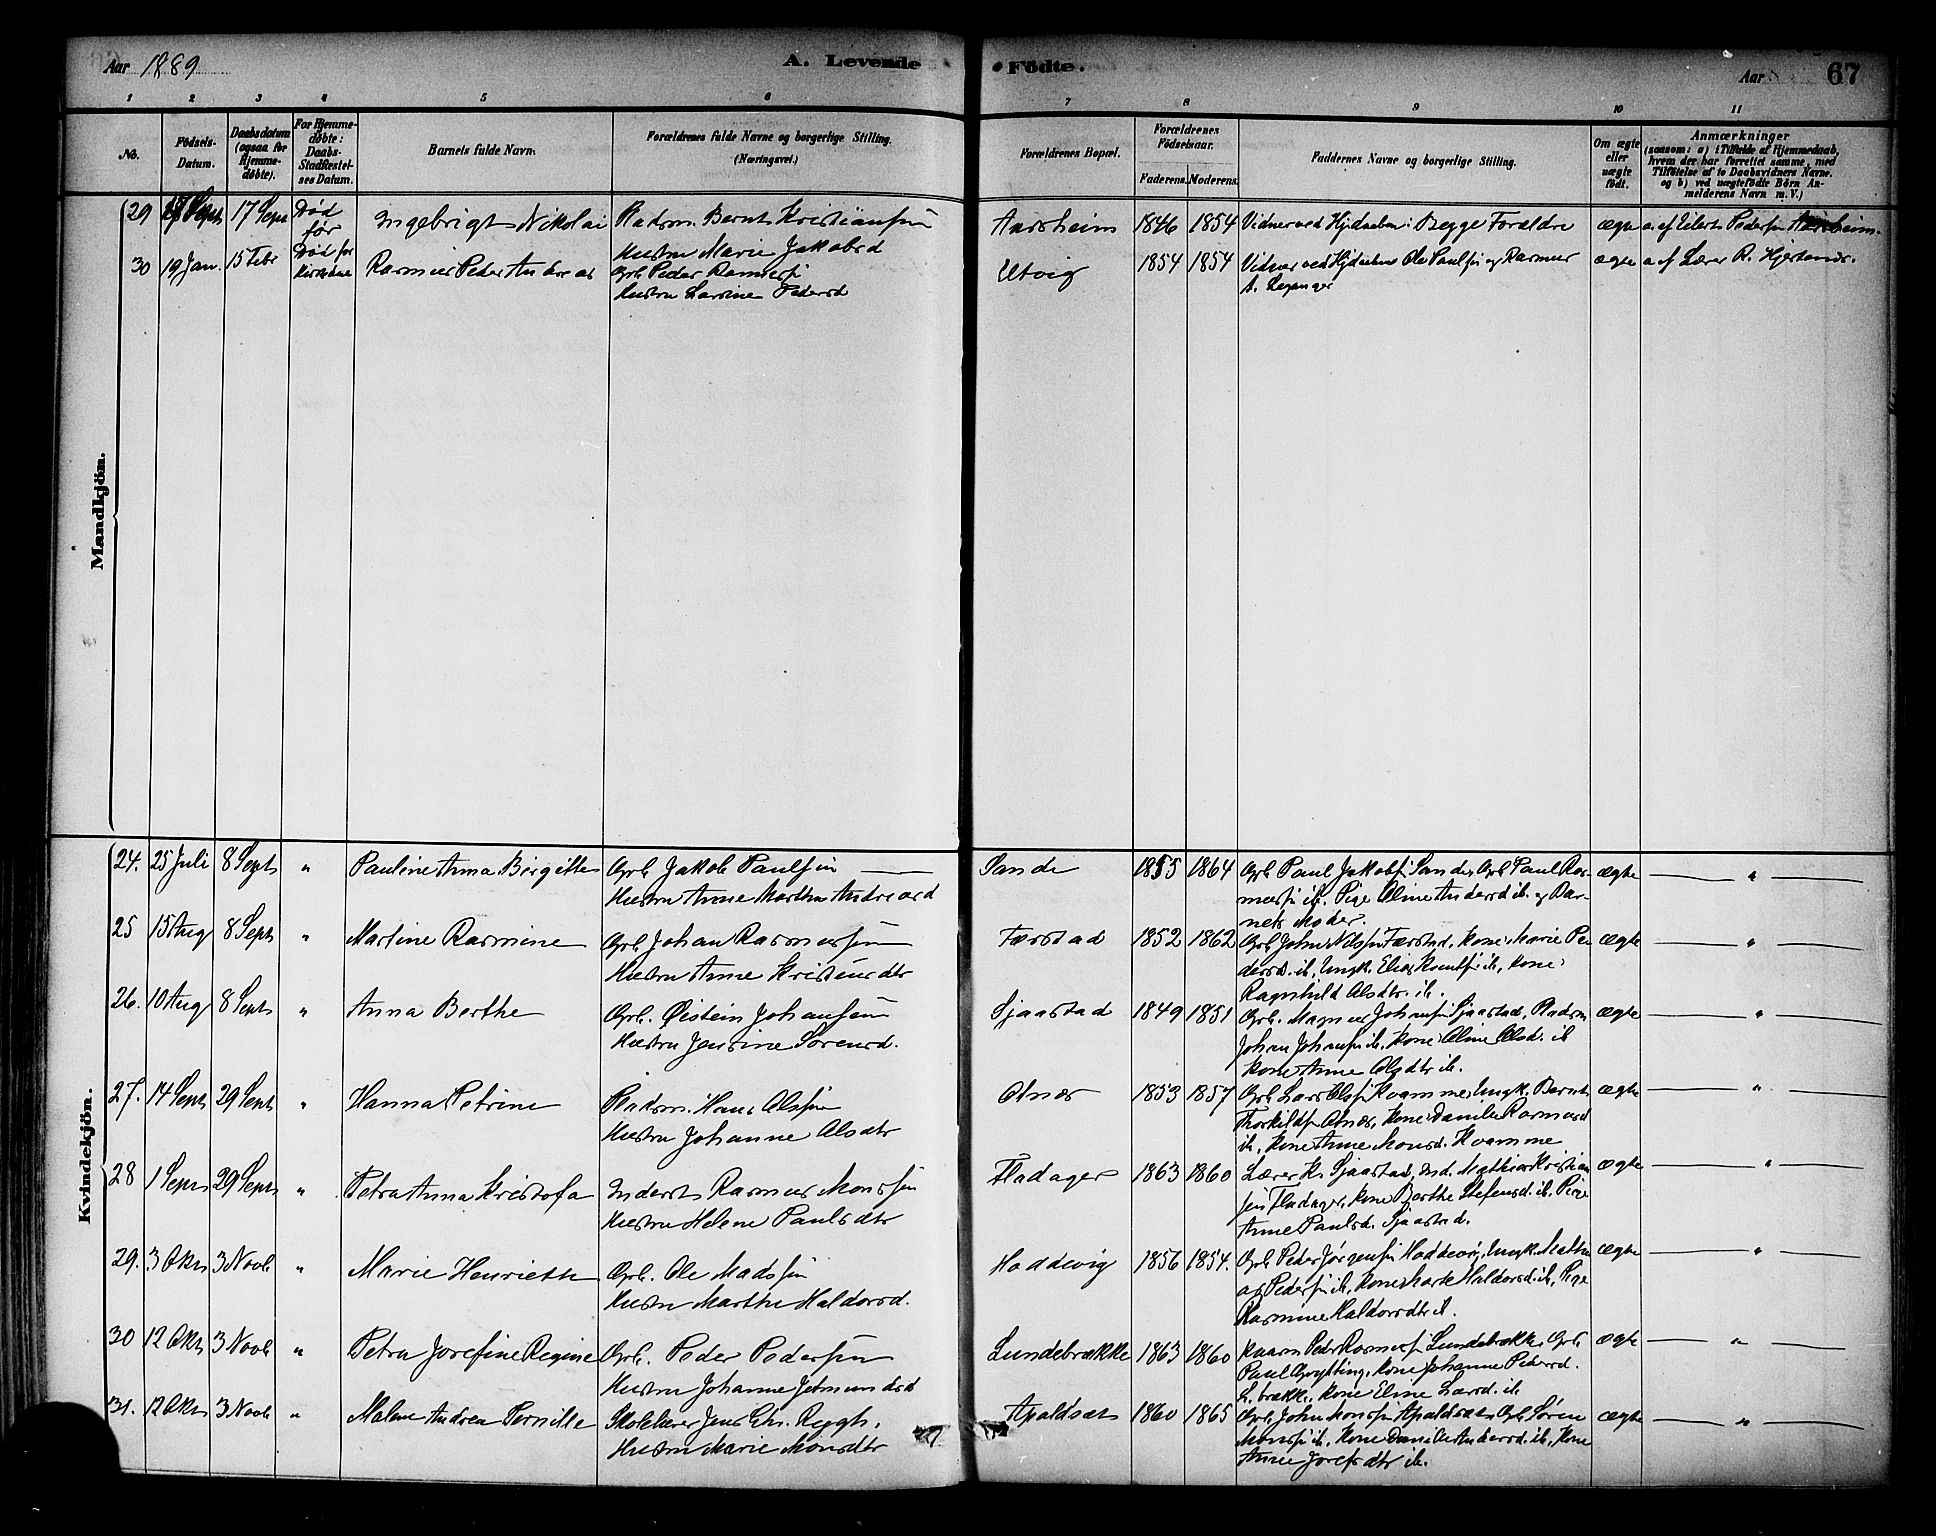 Aar 1889
A. Levende
Födte.
Aar
67
1 2 3 4 5 6 7 8 9 10 11
No.
Födsels-Datum.
Daabsdatum (ogsaa for Hjemme-døbte).
For Hjemme-døbte: Daabs-Stadfæstel-ses Datum.
Barnets fulde Navn.
Forældrenes fulde Navne og borgerlige Stilling.
(Næringsvei.)
Forældrenes Bopæl.
Forældrenes Födselsaar.
Faderens. Moderens.
Faddernes Navne og borgerlige Stilling.
Om ægte eller uægte födt.
Anmærkninger
(saasom: a) i Tilfælde af Hjemmedaab, hvem der har forrettet samme, med Tilföielse af to Daabsvidners Navne, og b) ved uægtefödte Börn An-melderens Navn m. V.)
Mandkjön.
29 Sept 17 Sept Död før Ingebrigt Nikolai Pladsm. Bernt Kristiansen
Hustru Marie Jakobsd
Aarsheim 1846 1854 Vidner ved Hjdaaben: Begge Forældre ægte a. af Eilert Pedersen Aarsheim.
30 19 Jan. 15 Febr Död før Kirkedaab Rasmus Peder Andreas Grb. Peder Rasmuss
Hustru Larsine Pedersd
Utvig 1854 1854 Vidner ved Hjdaaben Ole Paulsen og Rasmus
A. Leganger
ægte a af Lærer R. Hjertenæs.
Kvindekjön.
24. 25 Juli 8 Sept " Pauline Anna Birgitte Grb. Jakob Paulsen
Hustru Anne Marthe Andreasd
Sande 1855 1864 Grb. Paul Jakobs Sande, Grb. Paul Ras-
mussen ib. Pige Oline Andersd ib. og Bar-
nets Moder.
ægte "
25 15 Aug 8 Sept " Martine Rasmine Grb. Johan Rasmussen
Hustru Anne Kristensdtr
Færstad 1852 1862 Grb. John Nilsen Færstad, Kone Marie Pe-
dersd. ib, Ungk. Elias Knutsen ib, Kone
Ragnhild Olsdtr. ib.
ægte "
26. 10 Aug 8 Sept " Anna Berthe Grb. Øistein Johansen
Hustru Jensine Sørensd.
Sjaastad 1849 1851 Grb. Magnus Johansen Sjaastad, Pladsm
Johan Johansen ib, Kone Oline Olsd. ib
Kone Anne Olsdtr ib.
ægte "
27. 14 Sept 29 Sept " Hanna Petrine Pladsm. Hans Olsen
Hustru Johanne Olsdtr
Otnes 1853 1857 Grb. Lars Olsen Kvamme, Ungk. Bernt
Thorkildsen Otnes, Kone Danike Rasmusd
ib, Kone Anne Monsd. Kvamme
ægte "
28 1 Sept 29 Sept " Petra Anna Kristofa Inderst Rasmus Monssen
Hustru Helene Paulsdtr
Fladager 1863 1860 Lærer K. Sjaastad, Ind. Mathias Kristian
sen Fladager, Kone Berthe Stefensd. ib. Pige
Anne Paulsd. Sjaastad.
ægte "
29. 3 Okt 3 Novb " Marie Henriette Grb. Ole Madssen
Hustru Marthe Haldorsd.
Hoddevig 1856 1854. Grb. Peder Jørgensen Hoddevig, Ungk. Mathi
as Pedersen ib, Kone Marte Haldorsd. ib, Pige
Rasmine Haldorsdtr ib.
ægte "
30 12 Okt 3 Novb " Petra Josefine Regine Grb. Peder Pedersen
Hustru Johanne Jetmundsd
Lundebrække 1863 1860 Kaarm Peder Rasmussen Lundebrække, Grb.
Paul Grytting, Kone Johanne Pedersd.
L.brække, Kone Eline Larsd. ib
ægte "
31. 12 Okt 3 Novb " Malene Andrea Pernille Skolelærer Jens Chr. Rygh.
Hustru Marie Monsdtr
Apaldset 1860 1865 Grb. John Monssen Apaldset, Grb. Søren
Monssen ib, Kone Danike Andersd. ib, Kone
Anne Josefsdtr ib.
ægte "